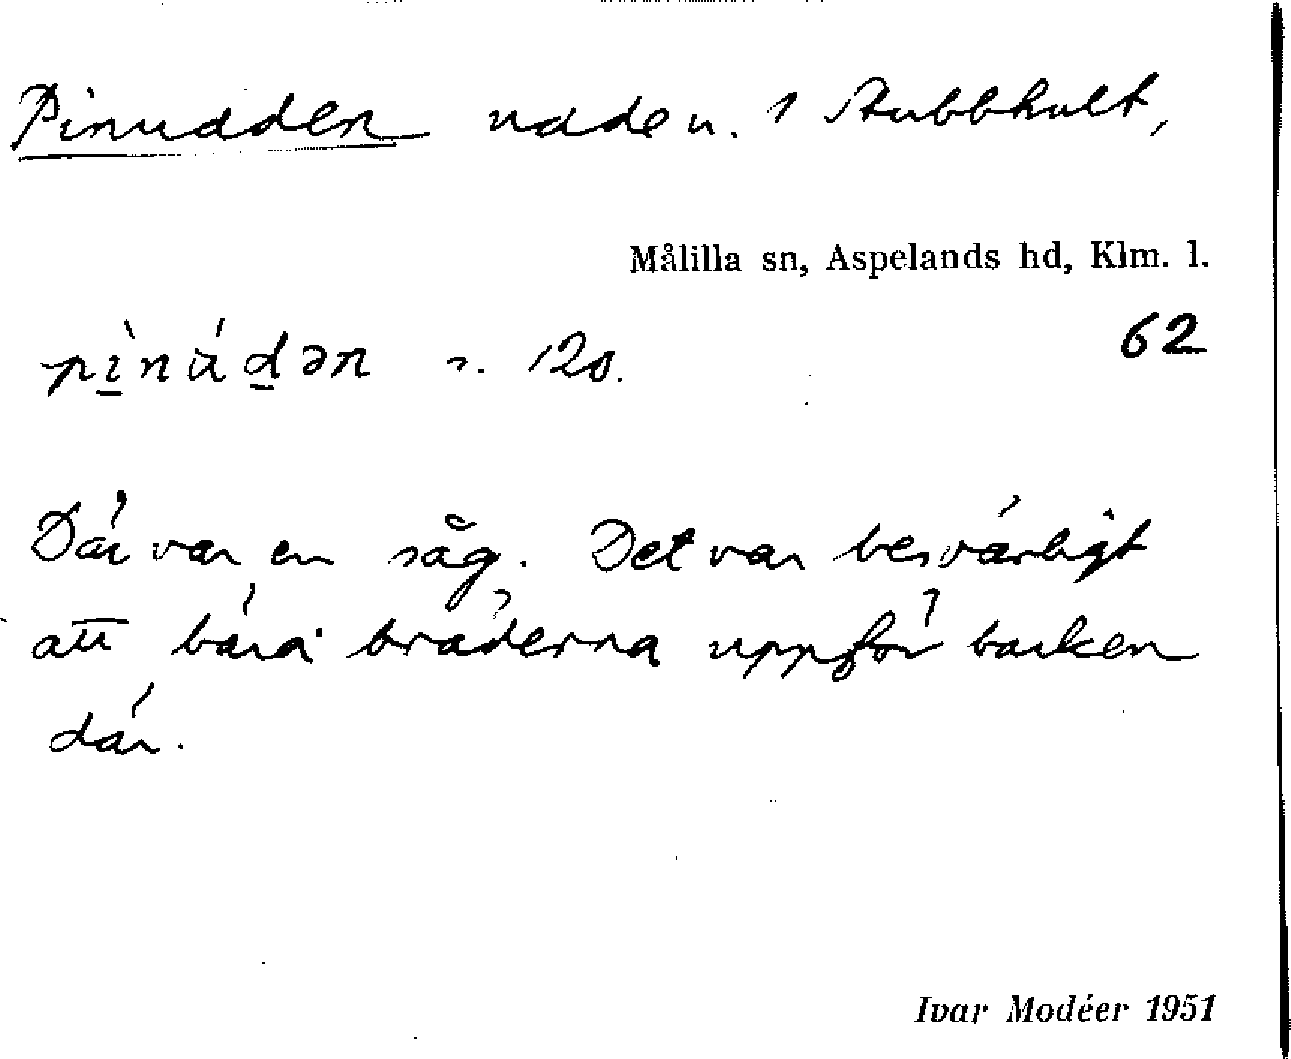 Pinudden udde n. 1 Stubbhult,
Målilla sn, Aspelands hd, Klm. l.
62
pìnúdən n. 120.
Där var en såg. Det var besvärligt
att bära bräderna uppför backen
där.
Ivar Modéer 1951